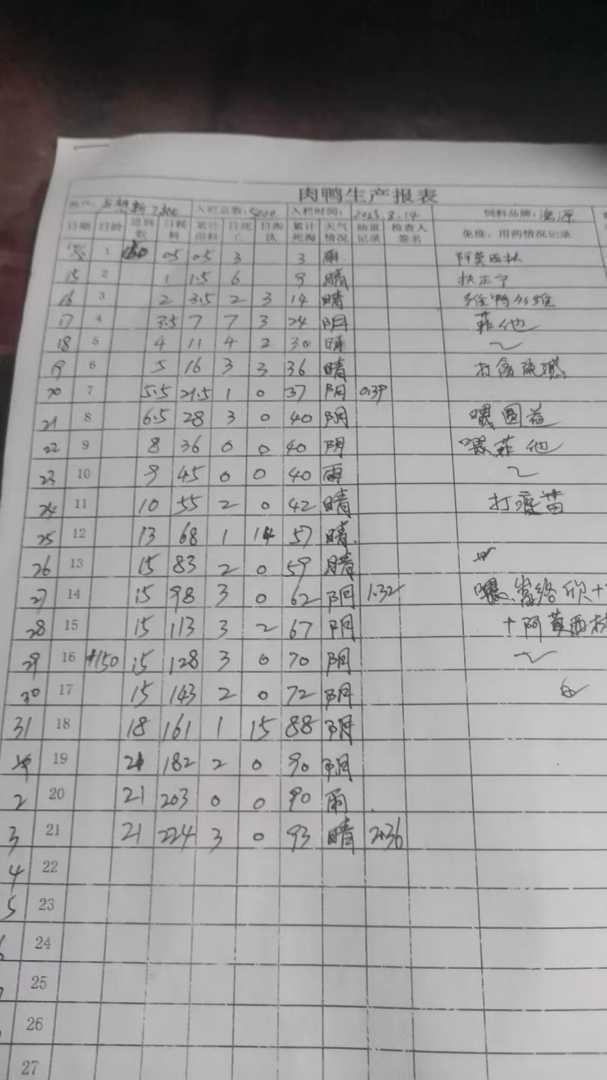 肉鸭生产报表
入栏总数：5000 入栏时间：2023.8.14 饲料品牌：
日期 日龄 进料数 日耗料 累计用料 日死亡 日淘汰 累计死淘 天气情况 体重记录 检查人签名 免疫、用药情况记录
1 0.5 0.5 3 3 雨 阿莫西林
15 2 1 1.5 6 9 晴
16 3 2 3.5 2 3 14 晴
17 4 3.5 7 7 3 24 阴 菲他
18 5 4 11 4 2 30 晴 〃
19 6 5 16 3 3 36 晴
20 7 5.5 21.5 1 0 37 阴 0.39
21 8 6.5 28 3 0 40 阴
22 9 8 36 0 0 40 阴 喂菲他
23 10 9 45 0 0 40 雨 〃
24 11 10 55 2 0 42 晴 打疫苗
25 12 13 68 1 14 57 晴
26 13 15 83 2 0 59 晴
27 14 15 98 3 0 62 阴 1.32
28 15 15 113 3 2 67 阴 +阿莫西林
29 16 +150 15 128 3 0 70 阴 〃
30 17 15 143 2 0 72 阴
31 18 18 161 1 15 88 阴
19 21 182 2 0 90 阴
2 20 21 203 0 0 90 雨
3 21 21 224 3 0 93 晴 2.36
4 22
5 23
24
25
26
27